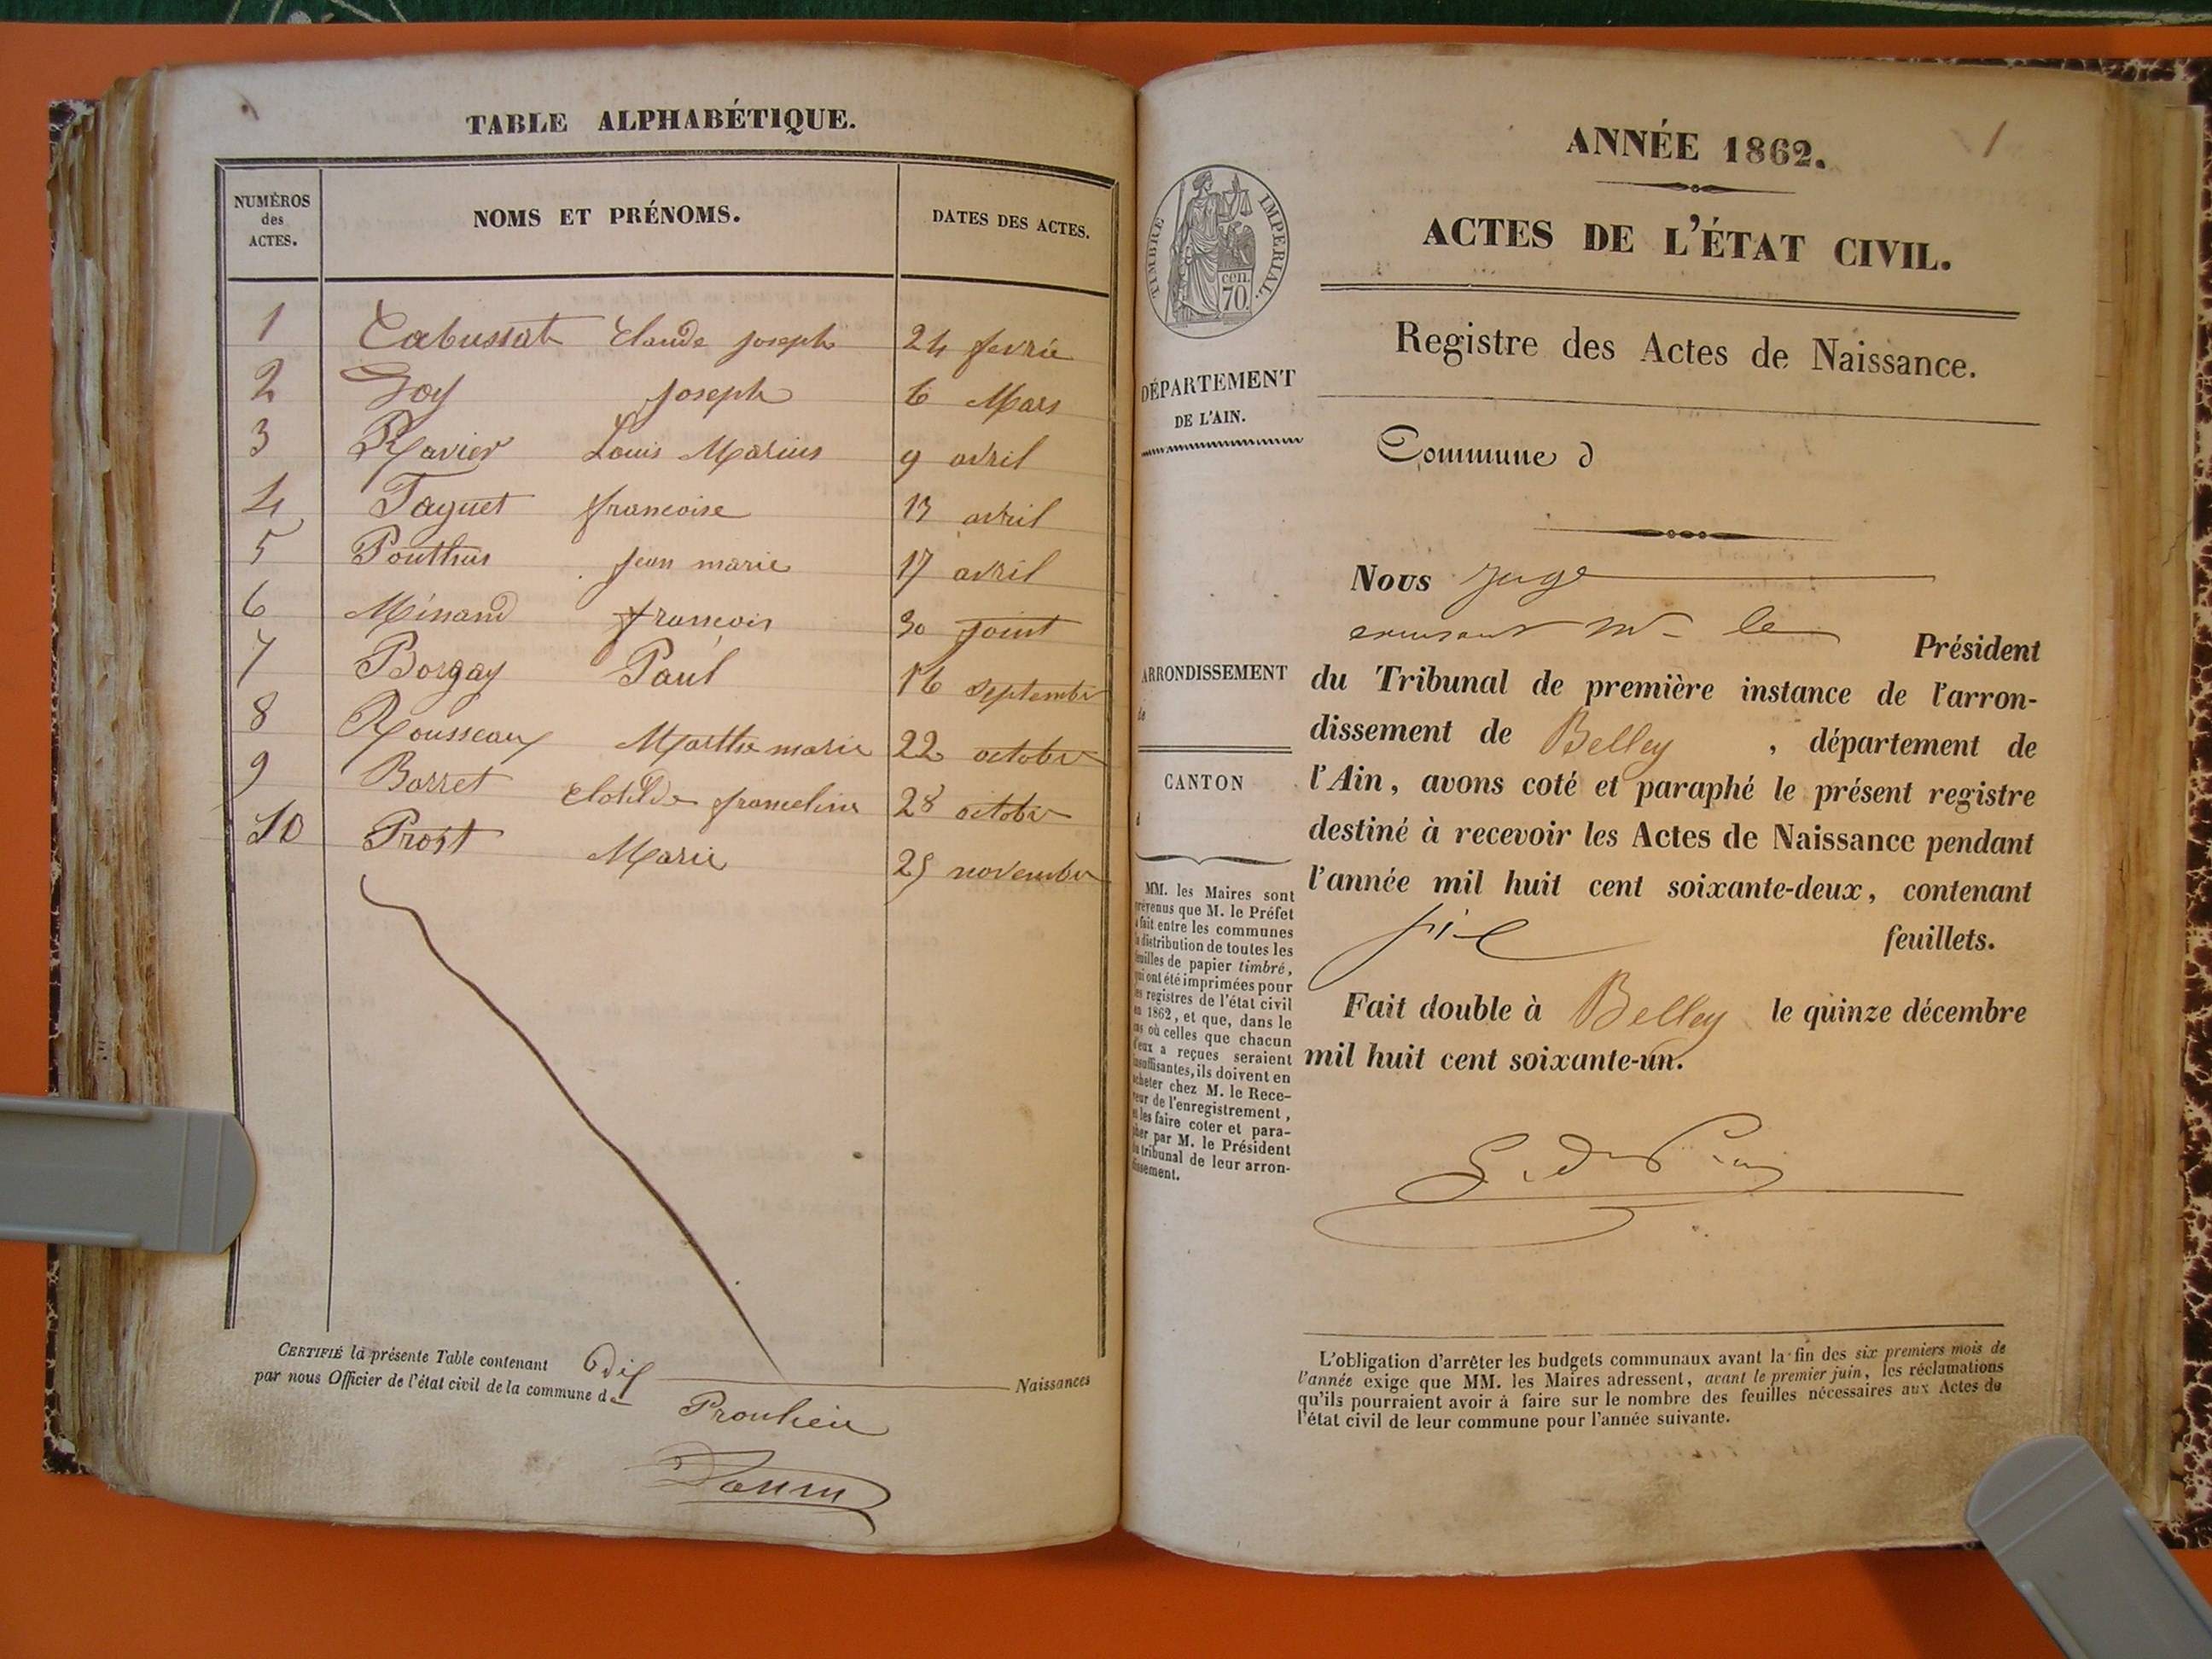 TABLE ALPHABÉTIQUE.
NUMÉROS des ACTES.
NOMS ET PRÉNOMS.
DATES DES ACTES.
1 Cabussat Claude joseph 24 fevrie
2 Goy joseph 6 Mars
3 Ravier Louis Marius 9 avril
4 Taguet francoise 13 avril
5 Ponthus jean marie 17 avril
6 Minand francois 30
7 Borgay Paul 16 septembre
8 Rousseau Marthe marie 22 octobre
9 Borret Clotilde franceline 28 octobre
10 Prost Marie 25 novembre
CERTIFIÉ la présente Table contenant dix Naissances
par nous Officier de l'état civil de la commune de
Proulieu
ANNÉE 1862.
1
ACTES DE L'ÉTAT CIVIL.
TIMBRE IMPERIAL.
cen.
70.
Registre des Actes de Naissance.
DÉPARTEMENT
DE L'AIN.
Commune d
Nous juge
Mr le Président
ARRONDISSEMENT
de
du Tribunal de première instance de l'arron-
dissement de Belley, département de
CANTON
d
l'Ain, avons coté et paraphé le présent registre
destiné à recevoir les Actes de Naissance pendant
l'année mil huit cent soixante-deux, contenant
six feuillets.
Fait double à Belley le quinze décembre
mil huit cent soixante-un.
MM. les Maires sont
prévenus que M. le Préfet
a fait entre les communes
la distribution de toutes les
feuilles de papier timbré,
qui ont été imprimées pour
les registres de l'état civil
en 1862, et que, dans le
cas où celles que chacun
d'eux a reçues seraient
insuffisantes, ils doivent en
acheter chez M. le Rece-
veur de l'enregistrement,
et les faire coter et para-
pher par M. le Président
du tribunal de leur arron-
dissement.
L'obligation d'arrêter les budgets communaux avant la fin des six premiers mois de
l'année exige que MM. les Maires adressent, avant le premier juin, les réclamations
qu'ils pourraient avoir à faire sur le nombre des feuilles nécessaires aux Actes de
l'état civil de leur commune pour l'année suivante.